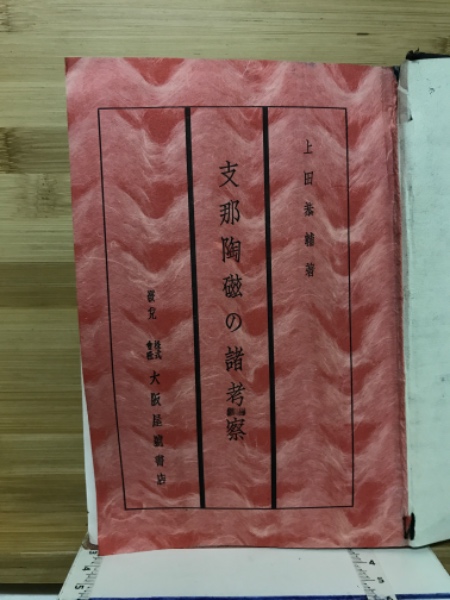 上田恭輔著
支那陶磁の諸考察
發兌 株式會社 大阪屋號書店